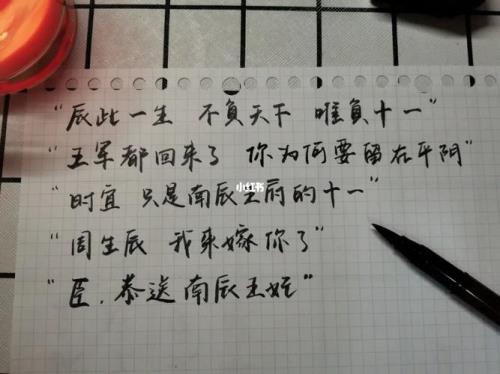 "辰此一生 不負天下 唯負十一"
"王军都回来了 你为何要留在平阴"
"时宜 只是南辰王府的十一"
小红书
"周生辰 我来嫁你了"
"臣.恭送南辰王妃"